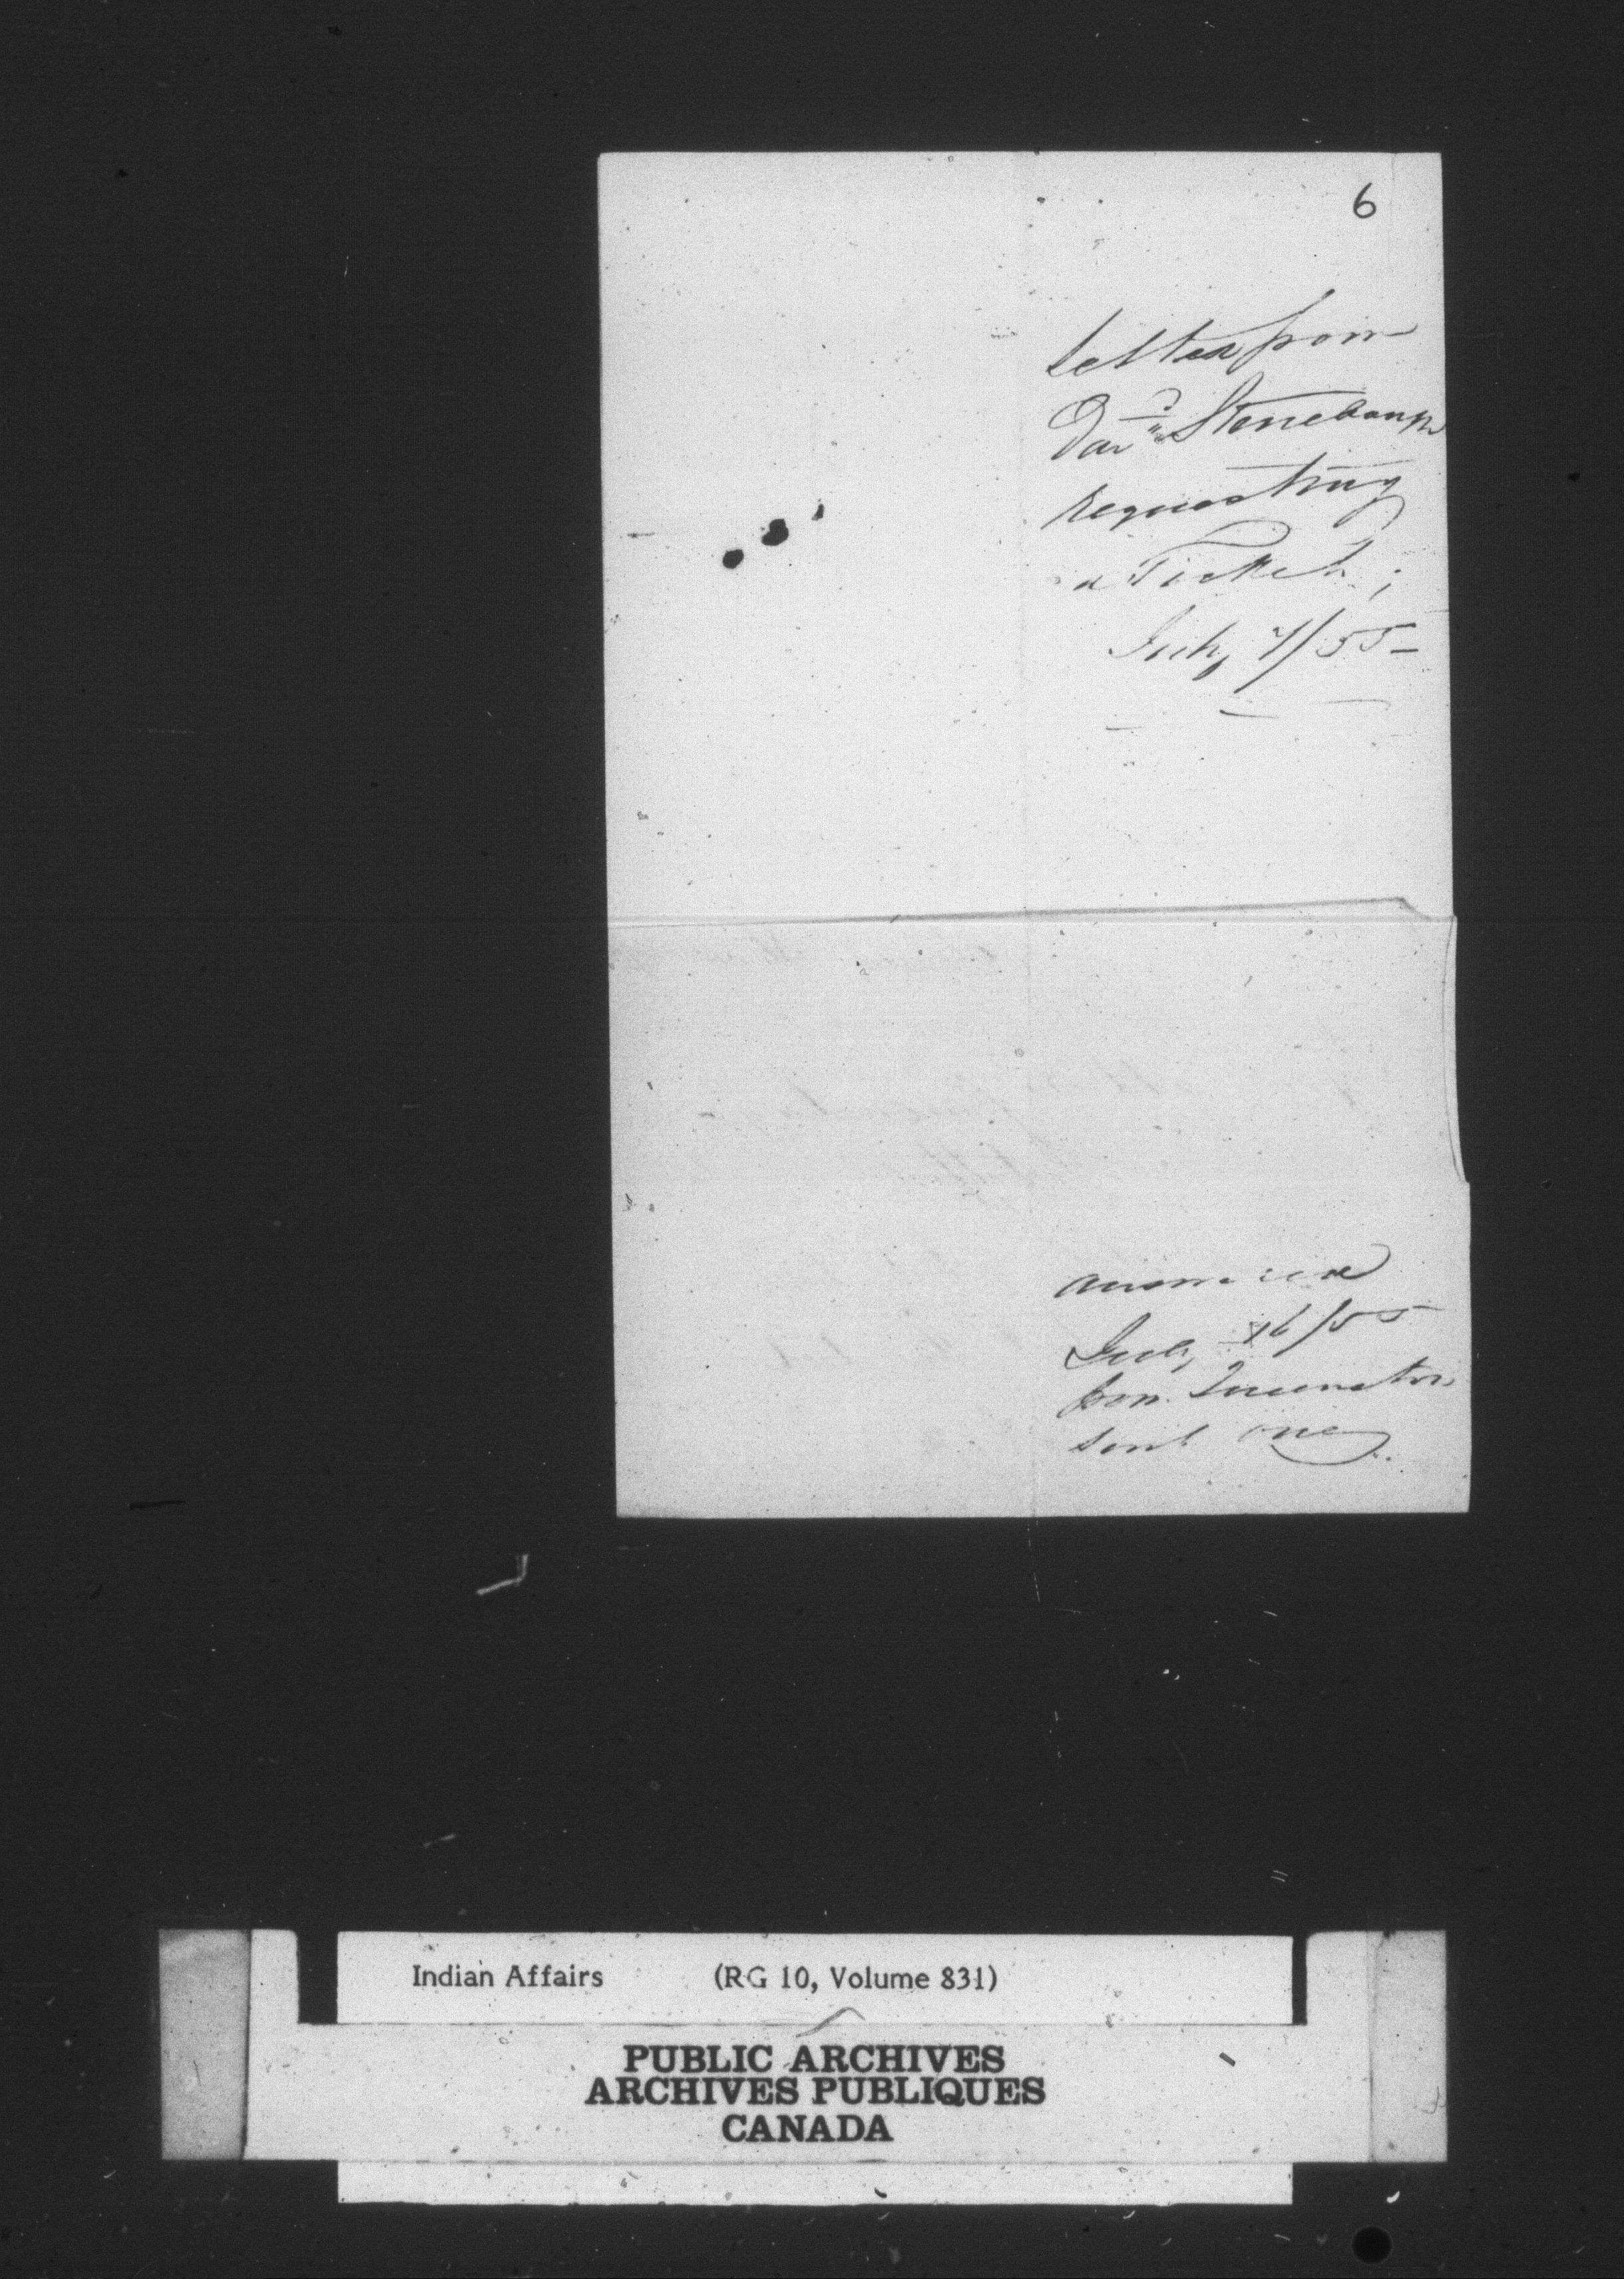 6
Letter from
Davd Stonebank
requesting
a Ticket;
July 7/55
answered
July 16/55
from
sent one
Indian Affairs (RG 10, Volume 831)
PUBLIC ARCHIVES
ARCHIVES PUBLIQUES
CANADA